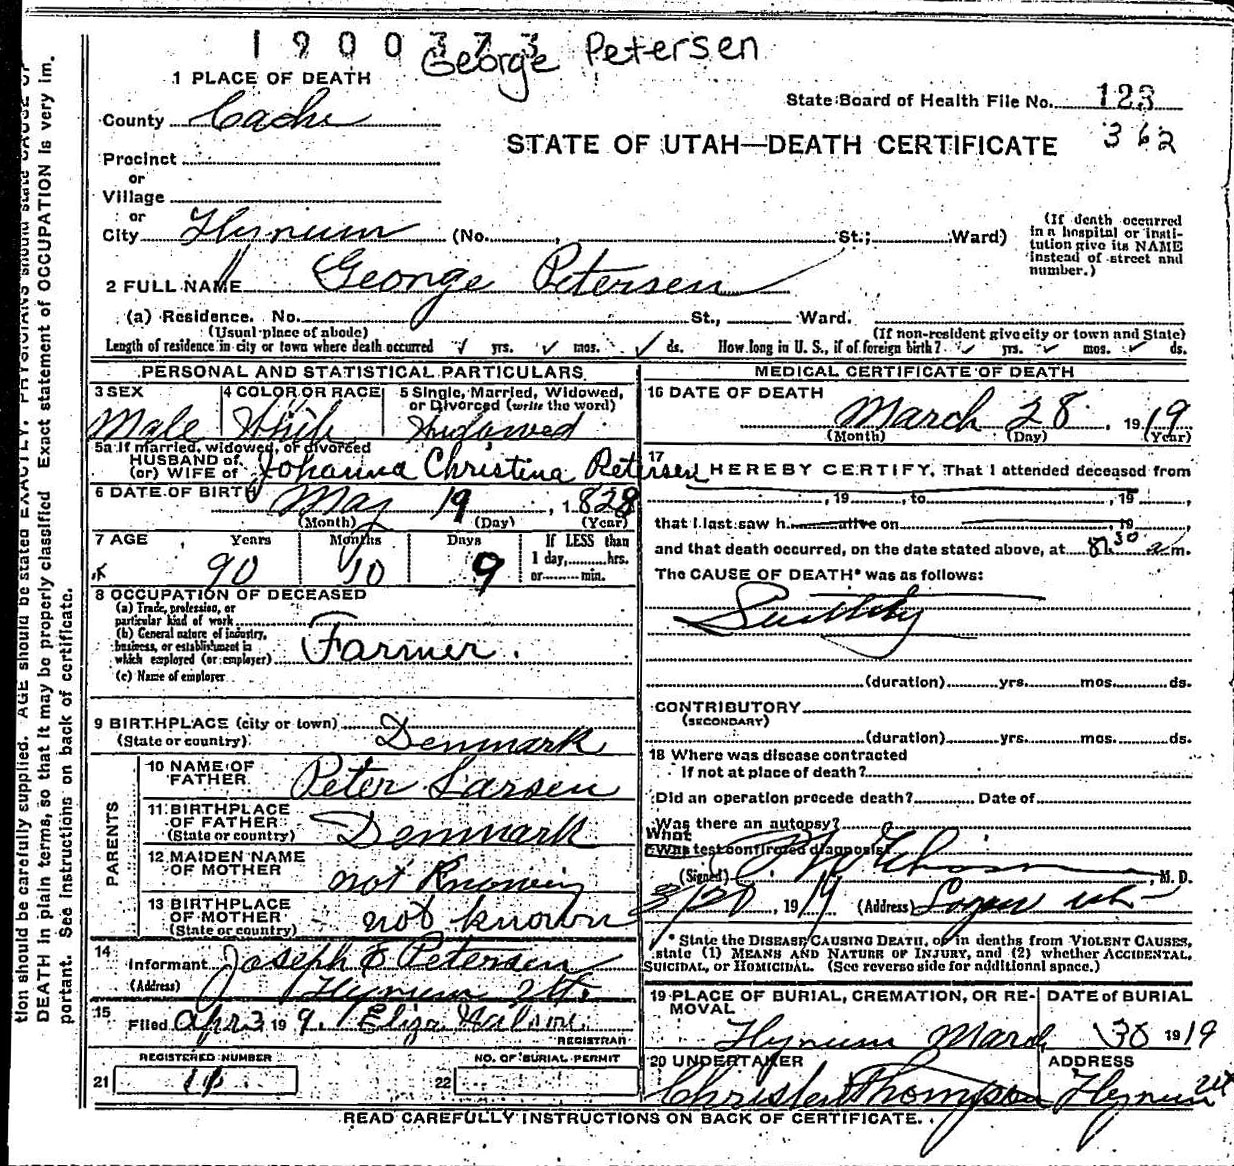 1900373
George Petersen
1 PLACE OF DEATH
State Board of Health File No. 123
County Cache
STATE OF UTAH—DEATH CERTIFICATE 362
Precinct
or
Village
or
City Hyrum (No. , St.; Ward)
(If death occurred in a hospital or institution give its NAME instead of street and number.)
2 FULL NAME George Petersen
(a) Residence. No. St., Ward.
(Usual place of abode) (If non-resident give city or town and State)
Length of residence in city or town where death occurred yrs. mos. ds. How long in U. S., if of foreign birth? yrs. mos. ds.
PERSONAL AND STATISTICAL PARTICULARS
3 SEX
Male
4 COLOR OR RACE
White
5 Single, Married, Widowed, or Divorced (write the word)
Widowed
5a If married, widowed, or divorced
HUSBAND OF
(or) WIFE OF Johanna Christina Petersen
6 DATE OF BIRTH May 19, 1828
(Month) (Day) (Year)
7 AGE Years Months Days If LESS than
1 day, hrs.
or min.
90 10 9
8 OCCUPATION OF DECEASED
(a) Trade, profession, or particular kind of work
(b) General nature of industry, business, or establishment in which employed (or employer) Farmer.
(c) Name of employer
9 BIRTHPLACE (city or town)
(State or country) Denmark
PARENTS
10 NAME OF FATHER Peter Larsen
11 BIRTHPLACE OF FATHER
(State or country) Denmark
12 MAIDEN NAME OF MOTHER not Knowing
13 BIRTHPLACE OF MOTHER
(State or country) not known
14
Informant Joseph E Petersen
(Address) Hyrum Ut.
15
Filed Apr 3 19 9. Eliza
REGISTRAR
REGISTERED NUMBER
21
NO. OF BURIAL PERMIT
22
MEDICAL CERTIFICATE OF DEATH
16 DATE OF DEATH
March 28, 1919
(Month) (Day) (Year)
17
I HEREBY CERTIFY, That I attended deceased from
, 19 , to , 19 ,
that I last saw h alive on , 19 ,
and that death occurred, on the date stated above, at 8.30 a m.
The CAUSE OF DEATH* was as follows:
(duration) yrs. mos. ds.
CONTRIBUTORY
(SECONDARY)
(duration) yrs. mos. ds.
18 Where was disease contracted
if not at place of death?
Did an operation precede death? Date of
Was there an autopsy?
What test confirmed diagnosis?
(Signed) , M. D.
, 1919 (Address) Logan Ut
* State the DISEASE CAUSING DEATH, or in deaths from VIOLENT CAUSES, state (1) MEANS AND NATURE OF INJURY, and (2) whether ACCIDENTAL, SUICIDAL, or HOMICIDAL. (See reverse side for additional space.)
19 PLACE OF BURIAL, CREMATION, OR REMOVAL
Hyrum
DATE of BURIAL
March 30 1919
20 UNDERTAKER
Thompson
ADDRESS
Hyrum Ut
READ CAREFULLY INSTRUCTIONS ON BACK OF CERTIFICATE.
tion should be carefully supplied. AGE should be stated EXACTLY. PHYSICIANS should state CAUSE OF
DEATH in plain terms, so that it may be properly classified. Exact statement of OCCUPATION is very im-
portant. See instructions on back of certificate.